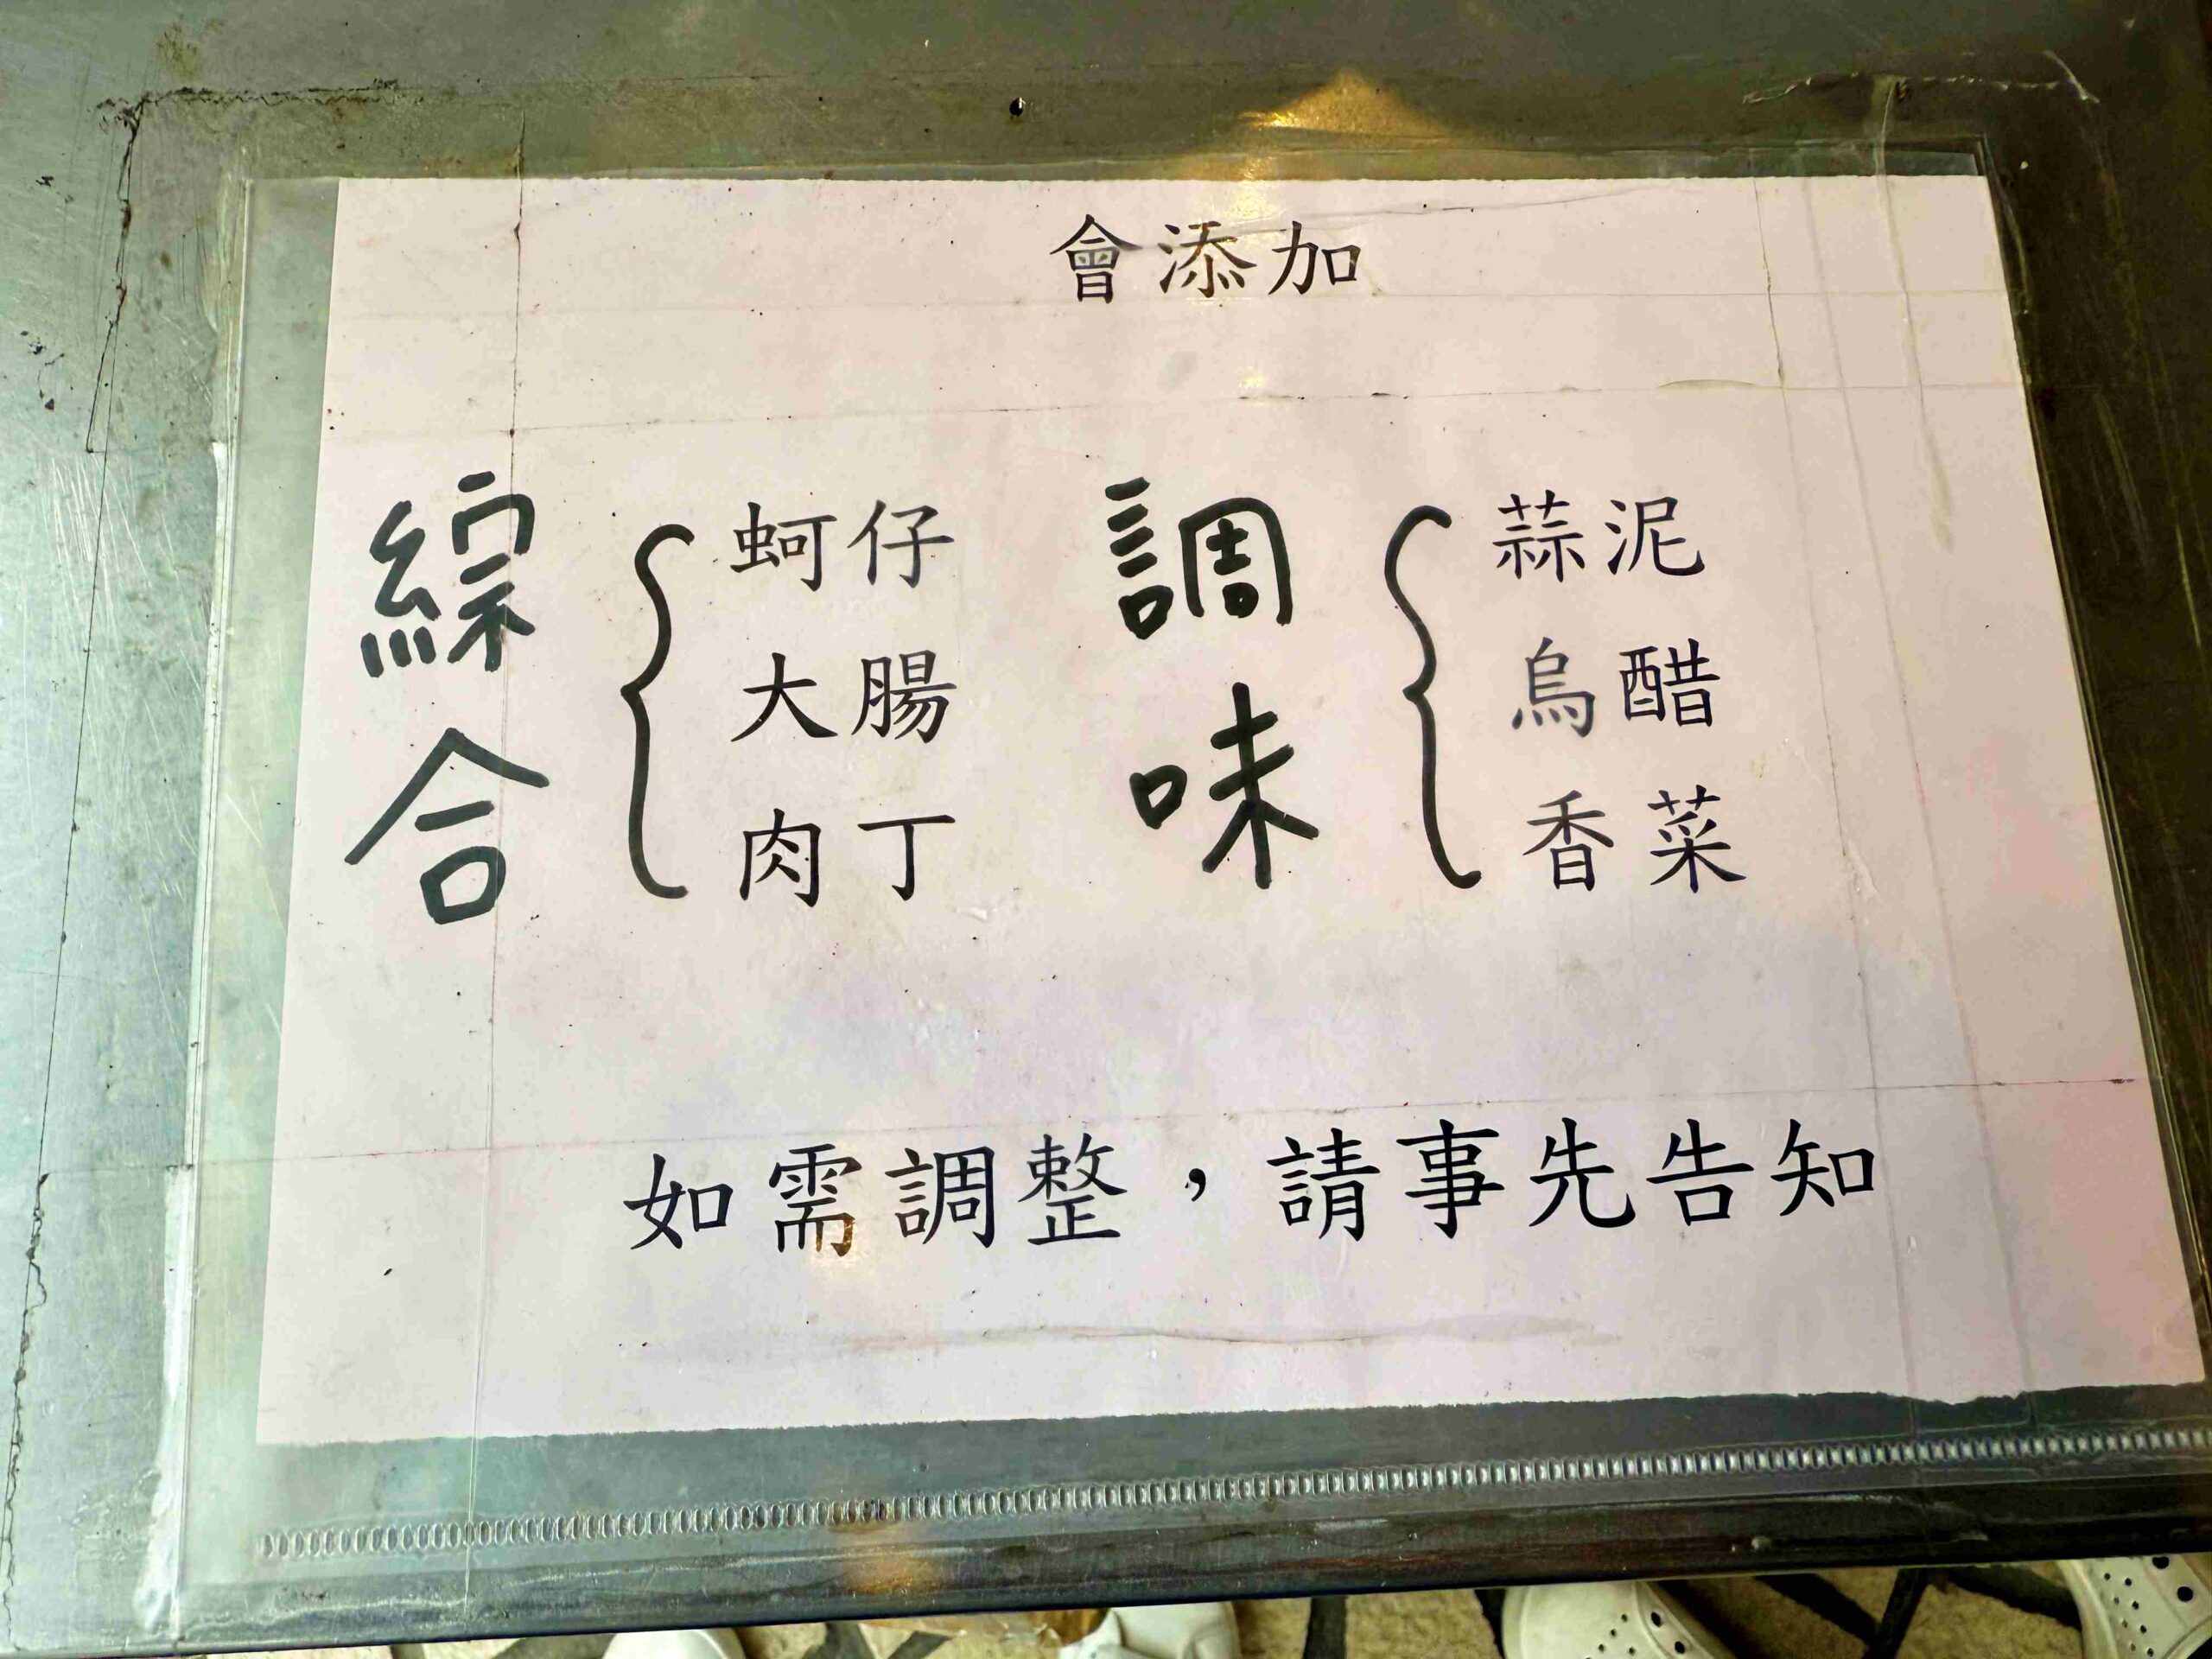 會添加
綜合
蚵仔
大腸
肉丁
調味
蒜泥
烏醋
香菜
如需調整，請事先告知